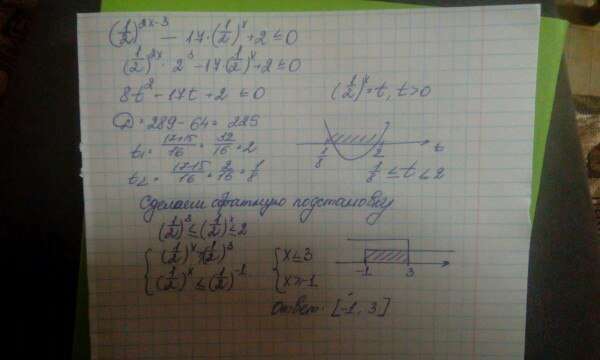 (1/2)^(2x-3) - 17·(1/2)^x + 2 ≤ 0
(1/2)^(2x) · 2^3 - 17(1/2)^x + 2 ≤ 0
8t^2 - 17t + 2 ≤ 0 (1/2)^x = t, t > 0
D = 289 - 64 = 225
t1 = (17+15)/16 = 32/16 = 2
1/8 2 t
t2 = (17-15)/16 = 2/16 = 1/8 1/8 ≤ t ≤ 2
Сделаем обратную подстановку
(1/2)^3 ≤ (1/2)^x ≤ 2
{ (1/2)^x ≥ (1/2)^3 { x ≤ 3
(1/2)^x ≤ (1/2)^-1 x ≥ -1
-1 3
Ответ: [-1; 3]